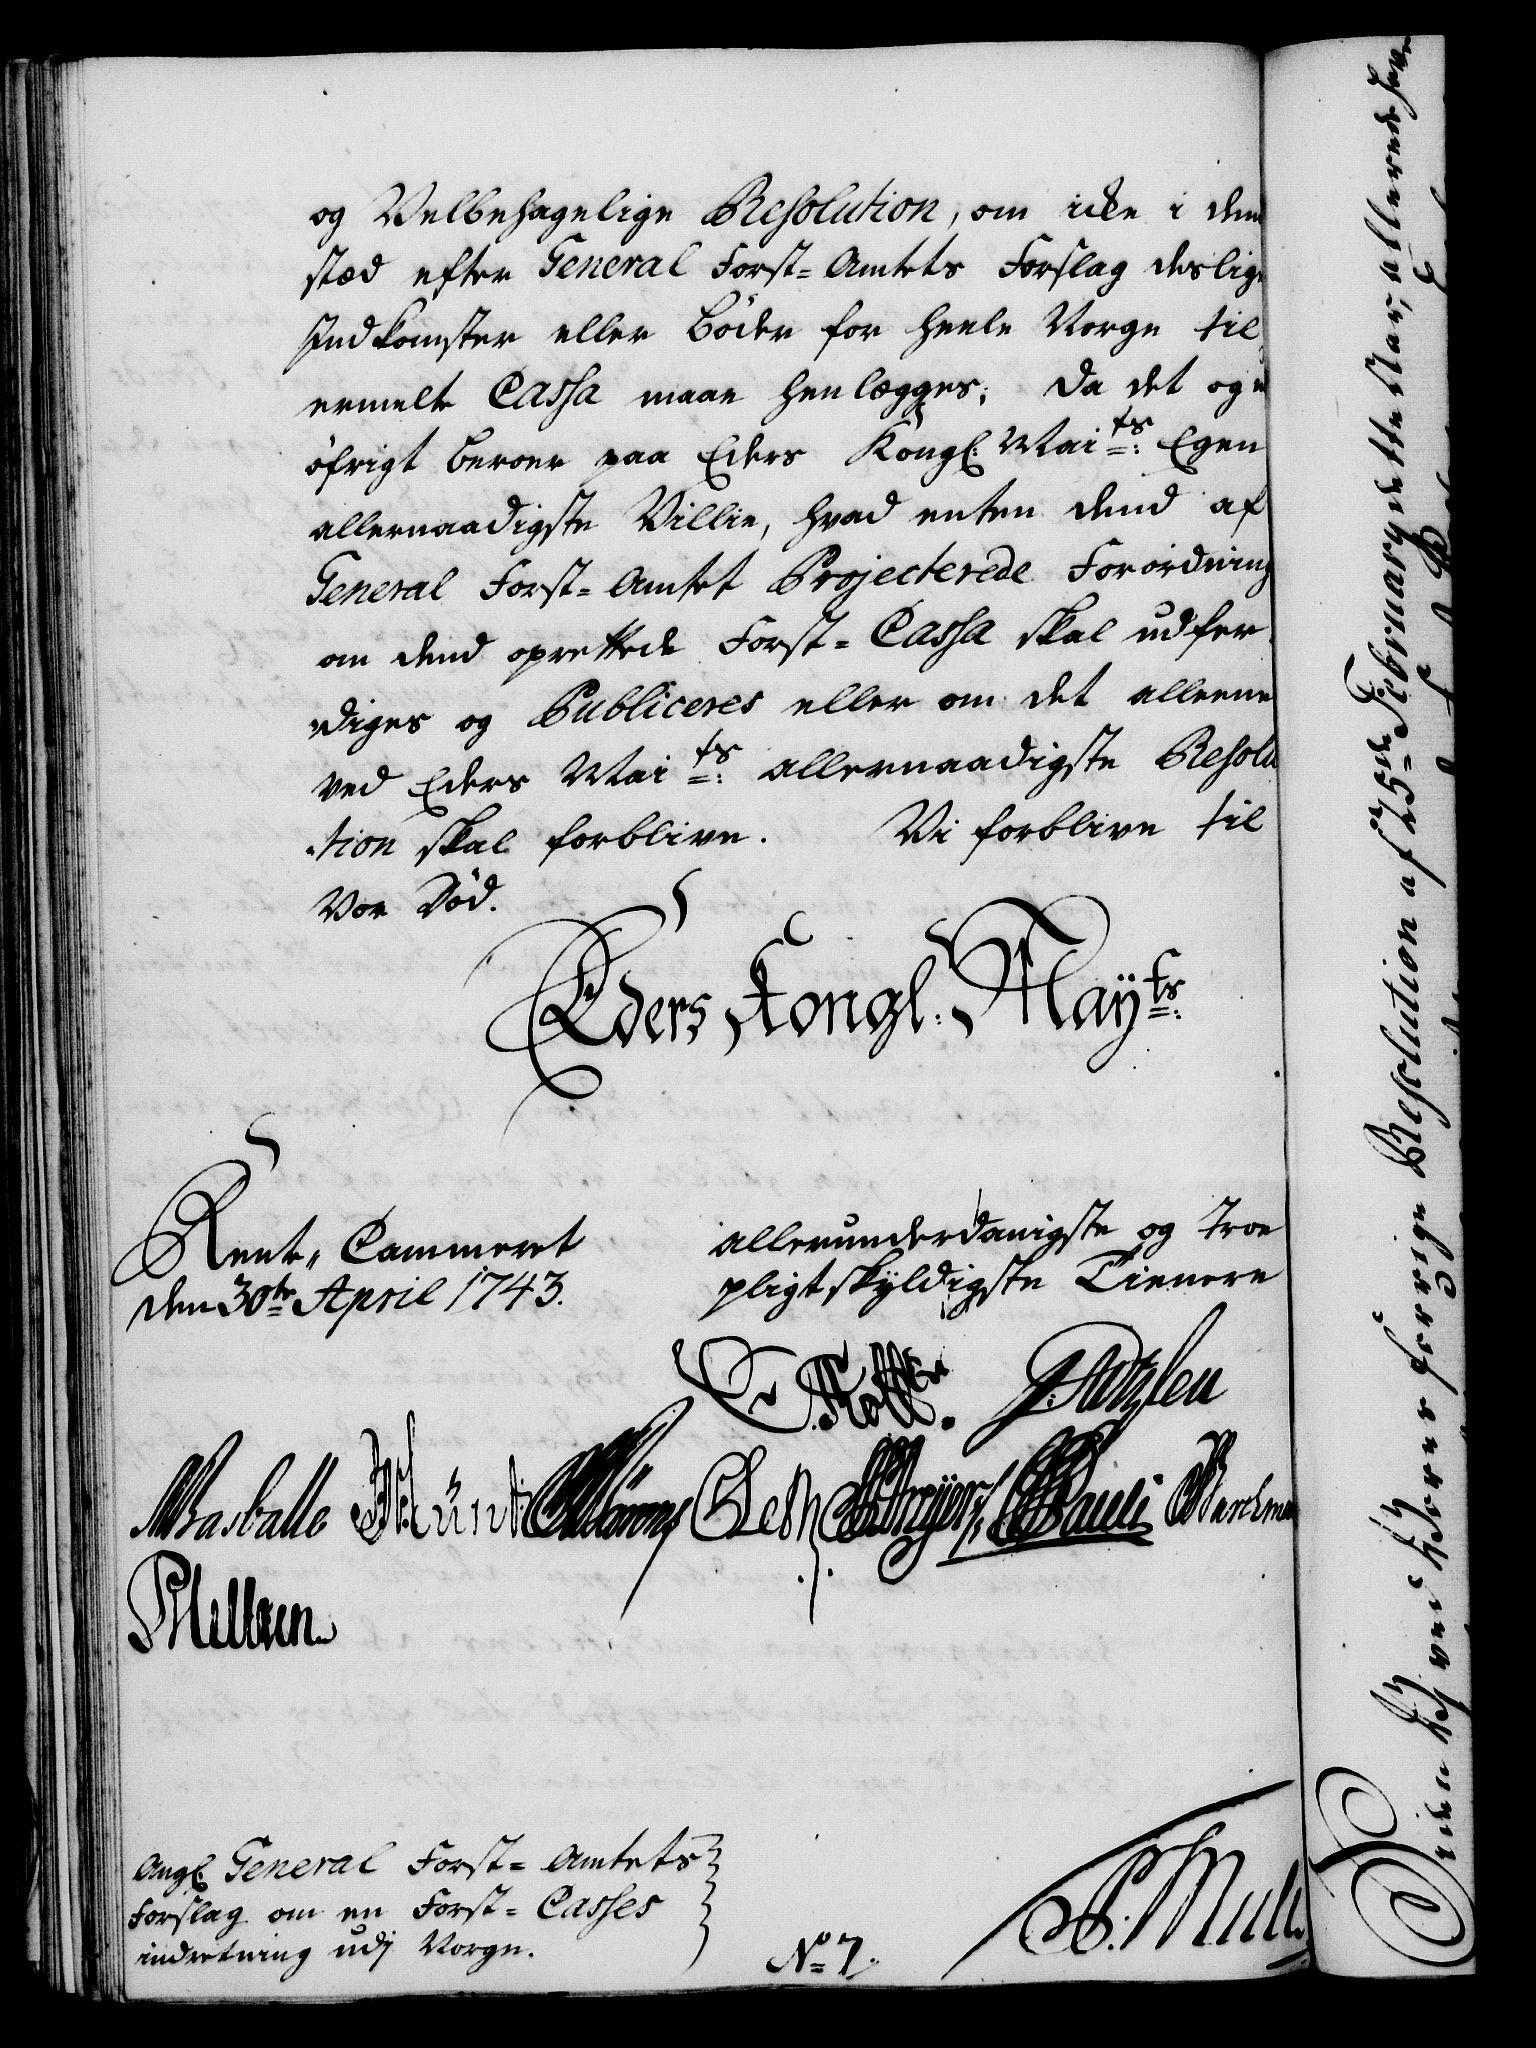 og Velbehagelige Resolution, om icke i dend
stæd efter General Forst=Amtets Forslag deslige
Indkomster eller Bøder for heele Norge til
ermelte Cassa maae henlægges; Da det og
øfrigt beroer paa Eders Kongl: Maits: Egen
allernaadigste Villie, hvad enten dend af
General Forst=Amtet Projecterede Forordning
om dend oprettede Forst=Cassa skal udfær
diges og Publiceres eller om det alleene
ved Eders Maits: allernaadigste Resolu
tion skal forblive. Vi forblive til
Vor Død.
Eders Kongl: Mayts:
Rente-Cammeret
den 30te April 1743.
allerunderdanigste og Troe
pligtskyldigste Tienere
Holst
Wasballe
Pauli
Mellven
Angl. General Forst=Amtets
Forslag om en Forst=Casses
indretning udj Norge.
No 7.
Siden Vj ved Vores forrige Resolution af 25de Februarij dette Aar, allerede have